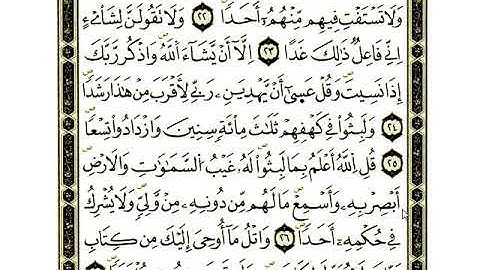 وَلَا تَسْتَفْتِ فِيهِم مِّنْهُمْ أَحَدًا ٢٢ وَلَا تَقُولَنَّ لِشَاْىْءٍ
إِنِّى فَاعِلٌ ذَٰلِكَ غَدًا ٢٣ إِلَّا أَن يَشَاءَ اللَّهُ وَاذْكُر رَّبَّكَ
إِذَا نَسِيتَ وَقُلْ عَسَىٰ أَن يَهْدِيَنِ رَبِّى لِأَقْرَبَ مِنْ هَٰذَا رَشَدًا
٢٤ وَلَبِثُوا فِى كَهْفِهِمْ ثَلَٰثَ مِائَةٍ سِنِينَ وَازْدَادُوا تِسْعًا
٢٥ قُلِ اللَّهُ أَعْلَمُ بِمَا لَبِثُوا لَهُ غَيْبُ السَّمَٰوَٰتِ وَالْأَرْضِ
أَبْصِرْ بِهِ وَأَسْمِعْ مَا لَهُم مِّن دُونِهِ مِن وَلِىٍّ وَلَا يُشْرِكُ
فِى حُكْمِهِ أَحَدًا ٢٦ وَاتْلُ مَا أُوحِىَ إِلَيْكَ مِن كِتَابِ